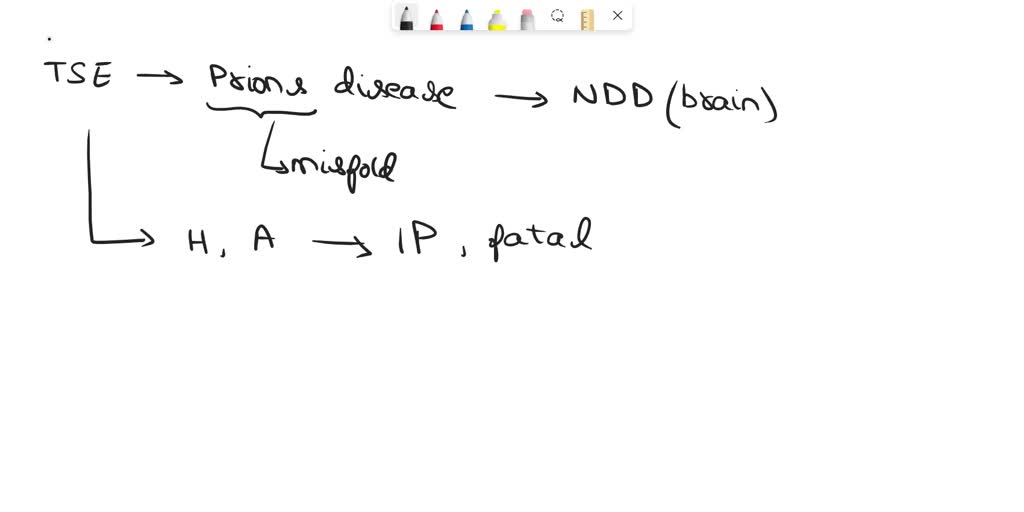 TSE → Prions disease → NDD (brain)
misfold
H, A → IP, fatal